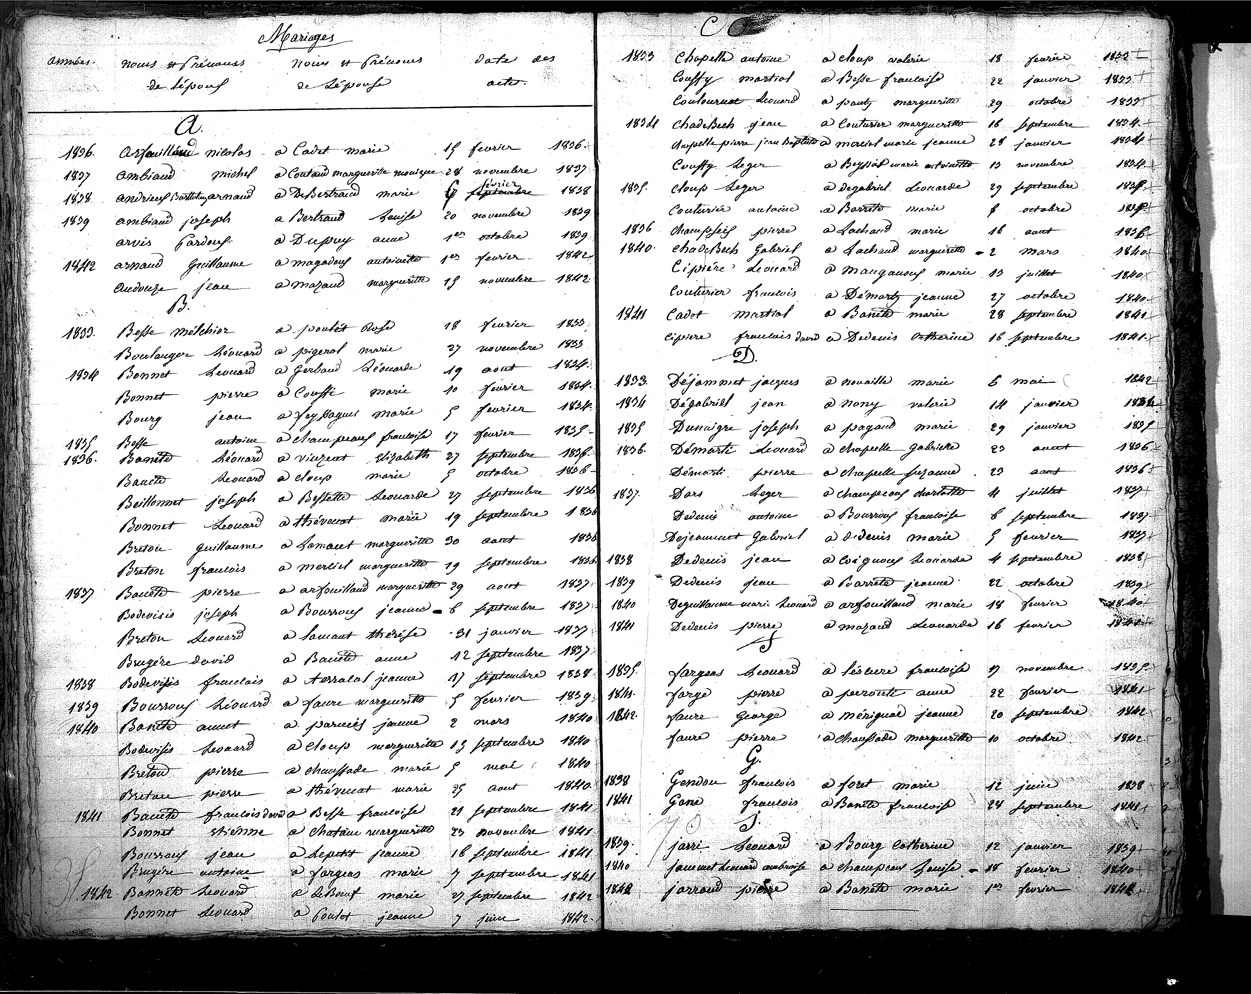 Mariages
années. noms et Prénoms noms et Prénoms date des
de l'époux de l'épouse actes.
A.
1836. arfouilland nicolas à Cadet marie 15 fevrier 1836.
1837 ambiaud michel à Coutaud marguerite monique 28 novembre 1837
1838 andrieux Barthelmy arnaud à DeBertrand marie 6 février septembre 1838
1839 ambiaud joseph à Bertraud Louise 20 novembre 1839
arvis Pardoux à Dupuy anne 1er octobre 1839
1842 arnaud Guillaume à magadoux antoinette 1er fevrier 1842
audouze jean à mazaud marguerite 15 novembre 1842
B.
1833. Besse melchior à poulet Rose 18 fevrier 1833
Boulanger Léonard à pigerol marie 27 novembre 1833
1834 Bonnet Léonard à Gerbaud Léonarde 19 aout 1834.
Bonnet pierre à Couffi marie 10 février 1834.
Bourg jean à feyssaguet marie 5 fevrier 1834.
1835 Besse antoine à champeaux francoise 17 fevrier 1835
1836. Banette Léonard à vinzent Elizabeth 27 septembre 1836
Banette Léonard à cloup marie 5 octobre 1836
Beillonnet joseph à Bessette Léonarde 27 septembre 1836
Bonnet Léonard à thévenat marie 19 septembre 1836
Breton guillaume à Lamaut marguerite 30 aout 1836
Breton francois à merliel marguerite 19 septembre 1836
1837 Banette pierre à arfouilland marguerite 29 aout 1837
Bodevisis joseph à Boussoux jeanne 6 septembre 1837
Breton Léonard à Lamaut thérèse 31 janvier 1837
Brugère david à Banette anne 12 septembre 1837
1838 Bodevisis francois à terracol jeanne 17 septembre 1838
1839 Boussoux Léonard à faure marguerite 5 fevrier 1839
1840 Banette annet à jeanne 2 mars 1840
Bodevisis Léonard à Cloup marguerite 15 septembre 1840
Breton pierre à chaussade marie 5 mai 1840
Breton pierre à thévenat marie 25 aout 1840
1841 Banette francois david à Besse francoise 21 septembre 1841
Bonnet etienne à Chatain marguerite 23 novembre 1841
Boussoux jean à Lepetit jeanne 16 septembre 1841
Brugère antoine à fargeas marie 7 septembre 1841
1842 Bannette Léonard à LeBouf marie 27 septembre 1842
Bonnet Léonard à Poulet jeanne 7 juin 1842.
C
1833 Chapelle antoine à cloup valerie 18 fevrier 1833
Couffy martial à Besse francoise 22 janvier 1833
Coutournat Léonard à pauty marguerite 29 octobre 1833
1834 ChadeBech jean à Couturier marguerite 16 septembre 1834.
chapelle pierre jean Baptiste à marie jeanne 28 janvier 1834
Couffy Leger à Beyssat marie antoinette 13 novembre 1834.
1835. Cloup Leger à degabriel Léonarde 29 septembre 1835
Couturier antoine à Barrette marie 8 octobre 1835
1836 Chausseix pierre à Lachaud marie 16 aout 1836
1840. ChadeBech Gabriel à Lachaud marguerite 2 mars 1840
Cipière Léonard à manganoux marie 13 juillet 1840
Couturier francois à Démarty jeanne 27 octobre 1840
1841 Cadot martial à Banette marie 28 septembre 1841
Cipiere francois david à Dedenis Catherine 16 septembre 1841.
D.
1833. Déjammet jacques à nouaille marie 6 mai 1842
1834 Dégabriel jean à nony valerie 14 janvier 1834
1835 Dunaigre joseph à pagand marie 29 janvier 1835
1836. Démarti Léonard à chapelle Gabrielle 23 aout 1836
Démarti pierre à chapelle suzanne 23 aout 1836
1837. Dars Leger à champeaux charlotte 4 juillet 1837
Dedenis antoine à Boussoux francoise 6 septembre 1837
Dejeammet Gabriel à dedenis marie 5 fevrier 1837
1838 Dedenis jean à Coignoux Léonarde 4 septembre 1838
1839 Dedenis jean à Barrette jeanne 22 octobre 1839
1840 Deguillaume marie Léonard à arfouilland marie 18 fevrier 1840
1841 Dedenis pierre à mazaud Léonarde 16 fevrier 1841
F
1835. fargeas Léonard à Lésture francoise 17 novembre 1835
1841. farge pierre à peroute anne 22 fevrier 1841
1842. faure George à mérignac jeanne 20 septembre 1842
faure pierre à chaussade marguerite 10 octobre 1842
G.
1838 Gendou francois à foret marie 12 juin 1838
1841 Gane francois à Banette francoise 28 septembre 1841
J.
1839. jarri Léonard à Bourg Catherine 12 janvier 1839
1840 jammet Léonard ambroise à champeaux Louise 18 fevrier 1840
1842 jarraud pierre à Banette marie 1er fevrier 1842